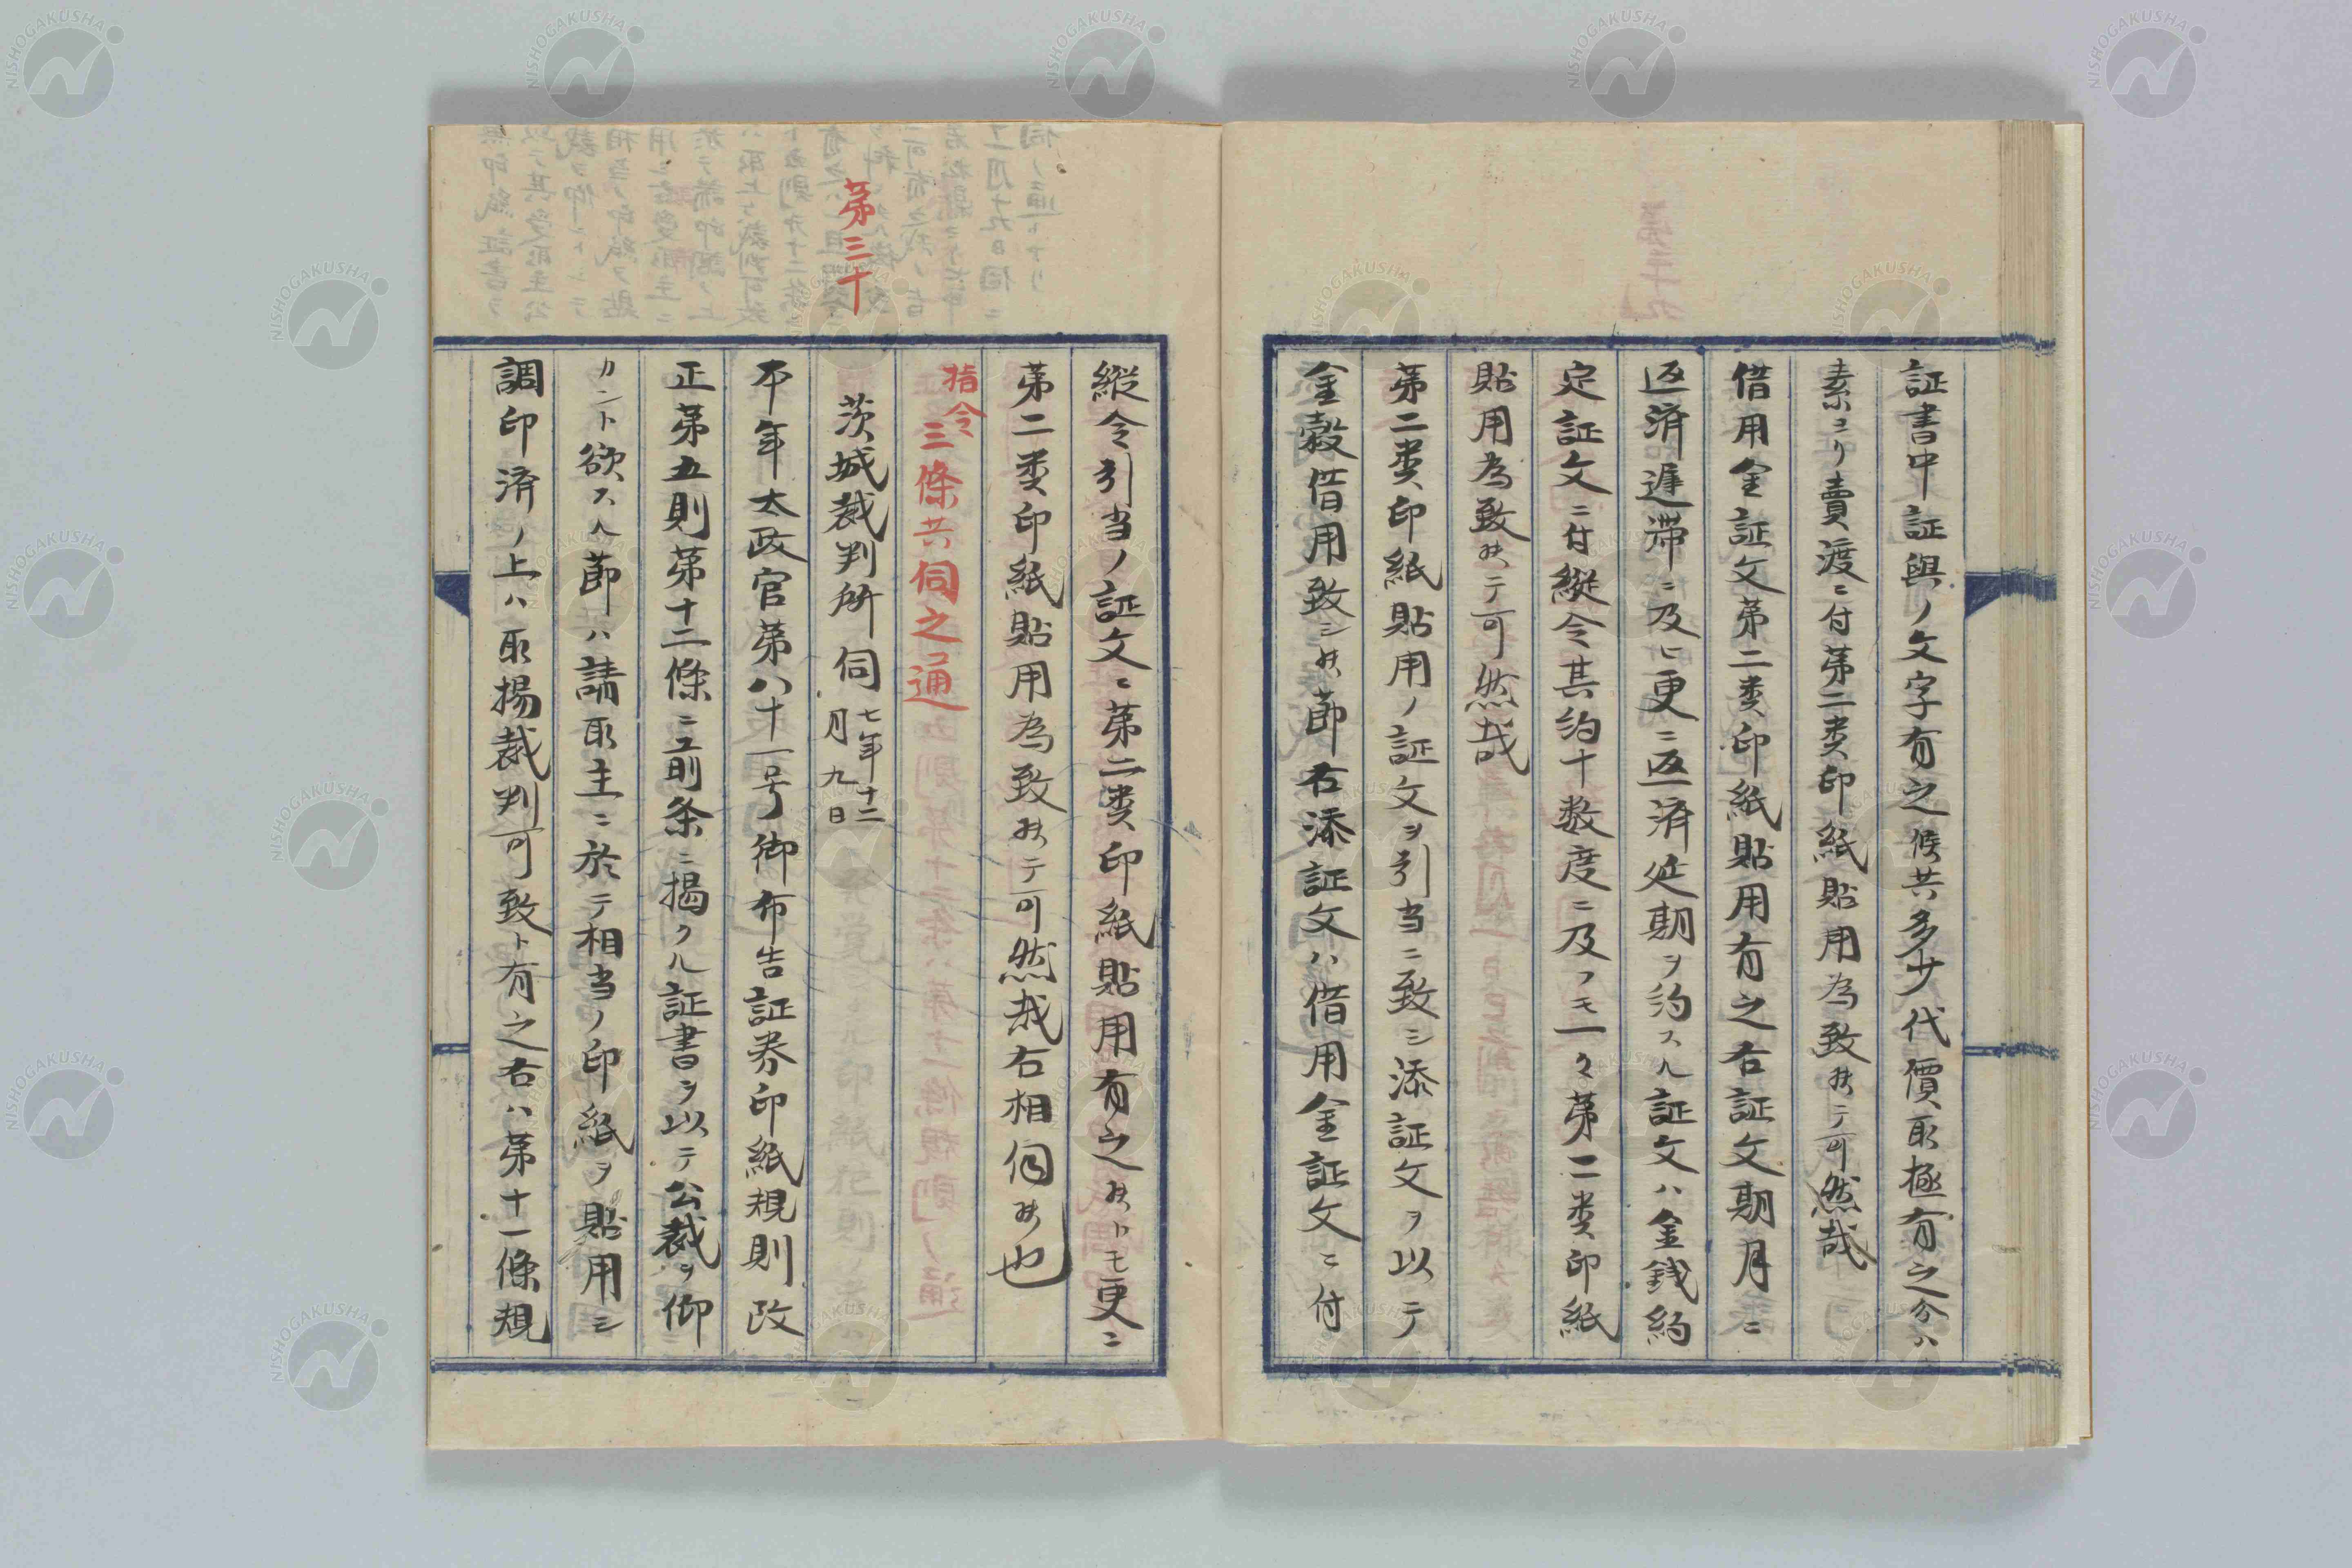 証書中証與ノ文字有之候共多少代價取極有之分ハ
素ヨリ賣渡ニ付第二類印紙貼用為致候テ可然哉
借用金証文第二類印紙貼用有之右証文期月ニ
返済遅滞ニ及ヒ更ニ返済延期ヲ約スル証文ハ金銭約
定証文ニ付縦令其約十数度ニ及フモ一々第二類印紙
貼用為致候テ可然哉
第二類印紙貼用ノ証文ヲ引当ニ致シ添証文ヲ以テ
金穀借用致シ候節右添証文ハ借用金証文ニ付
縦令引当ノ証文ニ第二類印紙貼用有之候トモ更ニ
第二類印紙貼用為致候テ可然哉右相伺候也
指令 三條共伺之通
第三十
茨城裁判所伺 七年十二月九日
本年太政官第八十一号御布告証券印紙規則改
正第五則第十二條ニ前条ニ掲クル証書ヲ以テ公裁ヲ仰
カント欲スル節ハ請取主ニ於テ相当ノ印紙ヲ貼用シ
調印済ノ上ハ取揚裁判可致ト有之右ハ第十一條規
NISHOGAKUSHA